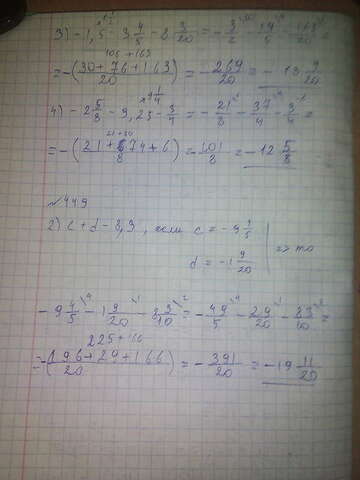 3) - 1,5 - 3 4/5 - 8 3/20 = - 3/2 - 19/5 - 163/20 =
106 + 163
= - (30 + 76 + 163)/20 = - 269/20 = - 13 9/20
4) - 2 5/8 - 9,25 - 3/4 = - 21/8 - 37/4 - 3/4 =
21 + 80
= - (21 + 74 + 6)/8 = - 101/8 = - 12 5/8
№ 449
2) c + d - 8,3, если c = - 9 4/5
=> то
d = - 1 9/20
- 9 4/5 - 1 9/20 - 8 3/10 = - 49/5 - 29/20 - 83/10 =
225 + 166
= - (196 + 29 + 166)/20 = - 391/20 = - 19 11/20